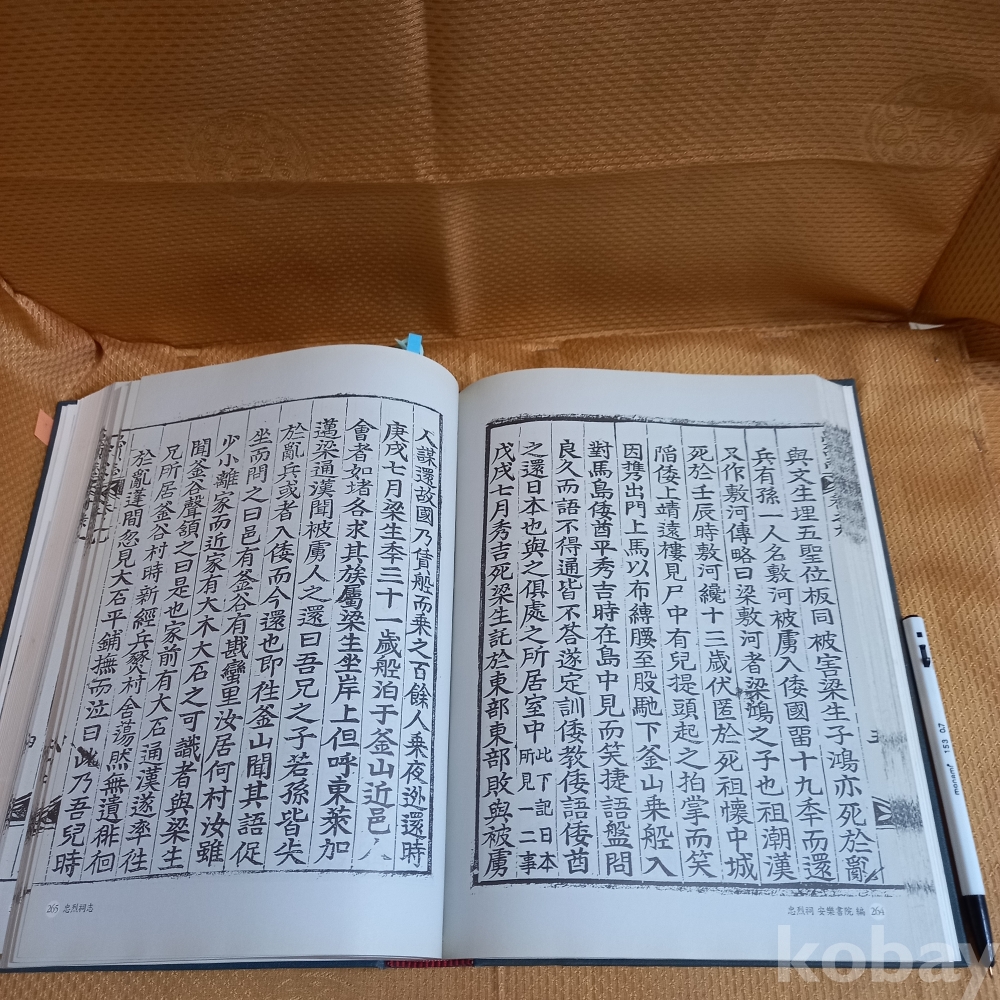 與文生埋五聖位板同被害梁生子鴻亦死於亂
兵有孫一人名敷河被虜入倭國畱十九年而還
又作敷河傳略曰梁敷河者梁鴻之子也祖潮漢
死於壬辰時敷河纔十三歲伏匿於死祖懷中城
陷倭上靖遠樓見尸中有兒提頭起之拍掌而笑
因携出門上馬以布縛腰至股馳下釜山乘船入
對馬島倭酋平秀吉時在島中見而笑捷語盤問
良久而語不得通皆不答遂定訓倭教倭語倭酋
之還日本也與之俱處之所居室中此下記日本所見一二事
戊戌七月秀吉死梁生託於東部東部敗與被虜
264 忠烈祠 安樂書院 編
人謀還故國乃賃船而乘之百餘人乘夜迯還時
庚戌七月梁生年三十一歲船泊于釜山近邑人
會者如堵各求其族屬梁生坐岸上但呼東萊加
邁梁通漢聞被虜人之還曰吾兄之子若孫皆失
於亂兵或者入倭而今還也即徃釜山聞其語促
坐而問之曰邑有釜谷有戡蠻里汝居何村汝雖
少小離家而近家有大木大石之可識者與梁生
聞釜谷聲頷之曰是也家前有大石通漢遂率徃
兄所居釜谷村時新經兵燹村舍蕩然無遺徘徊
於亂蓬間忽見大石平鋪撫而泣曰此乃吾兒時
265 忠烈祠志
monami 153 0.7
kobay